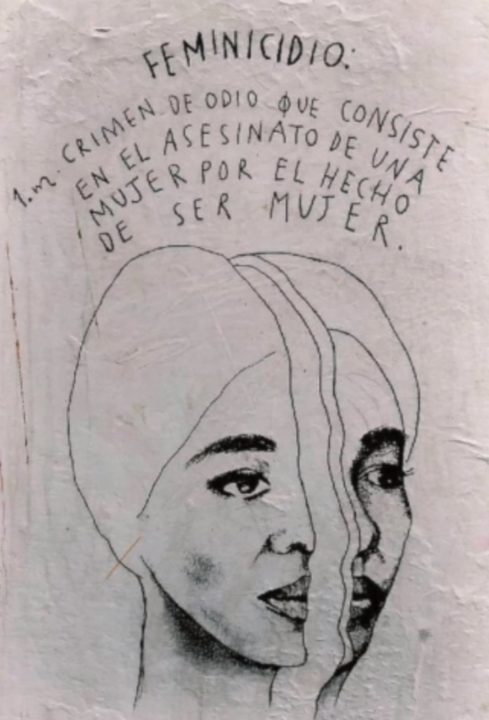 FEMINICIDIO:
1. m. CRIMEN DE ODIO QUE CONSISTE
EN EL ASESINATO DE UNA
MUJER POR EL HECHO
DE SER MUJER.